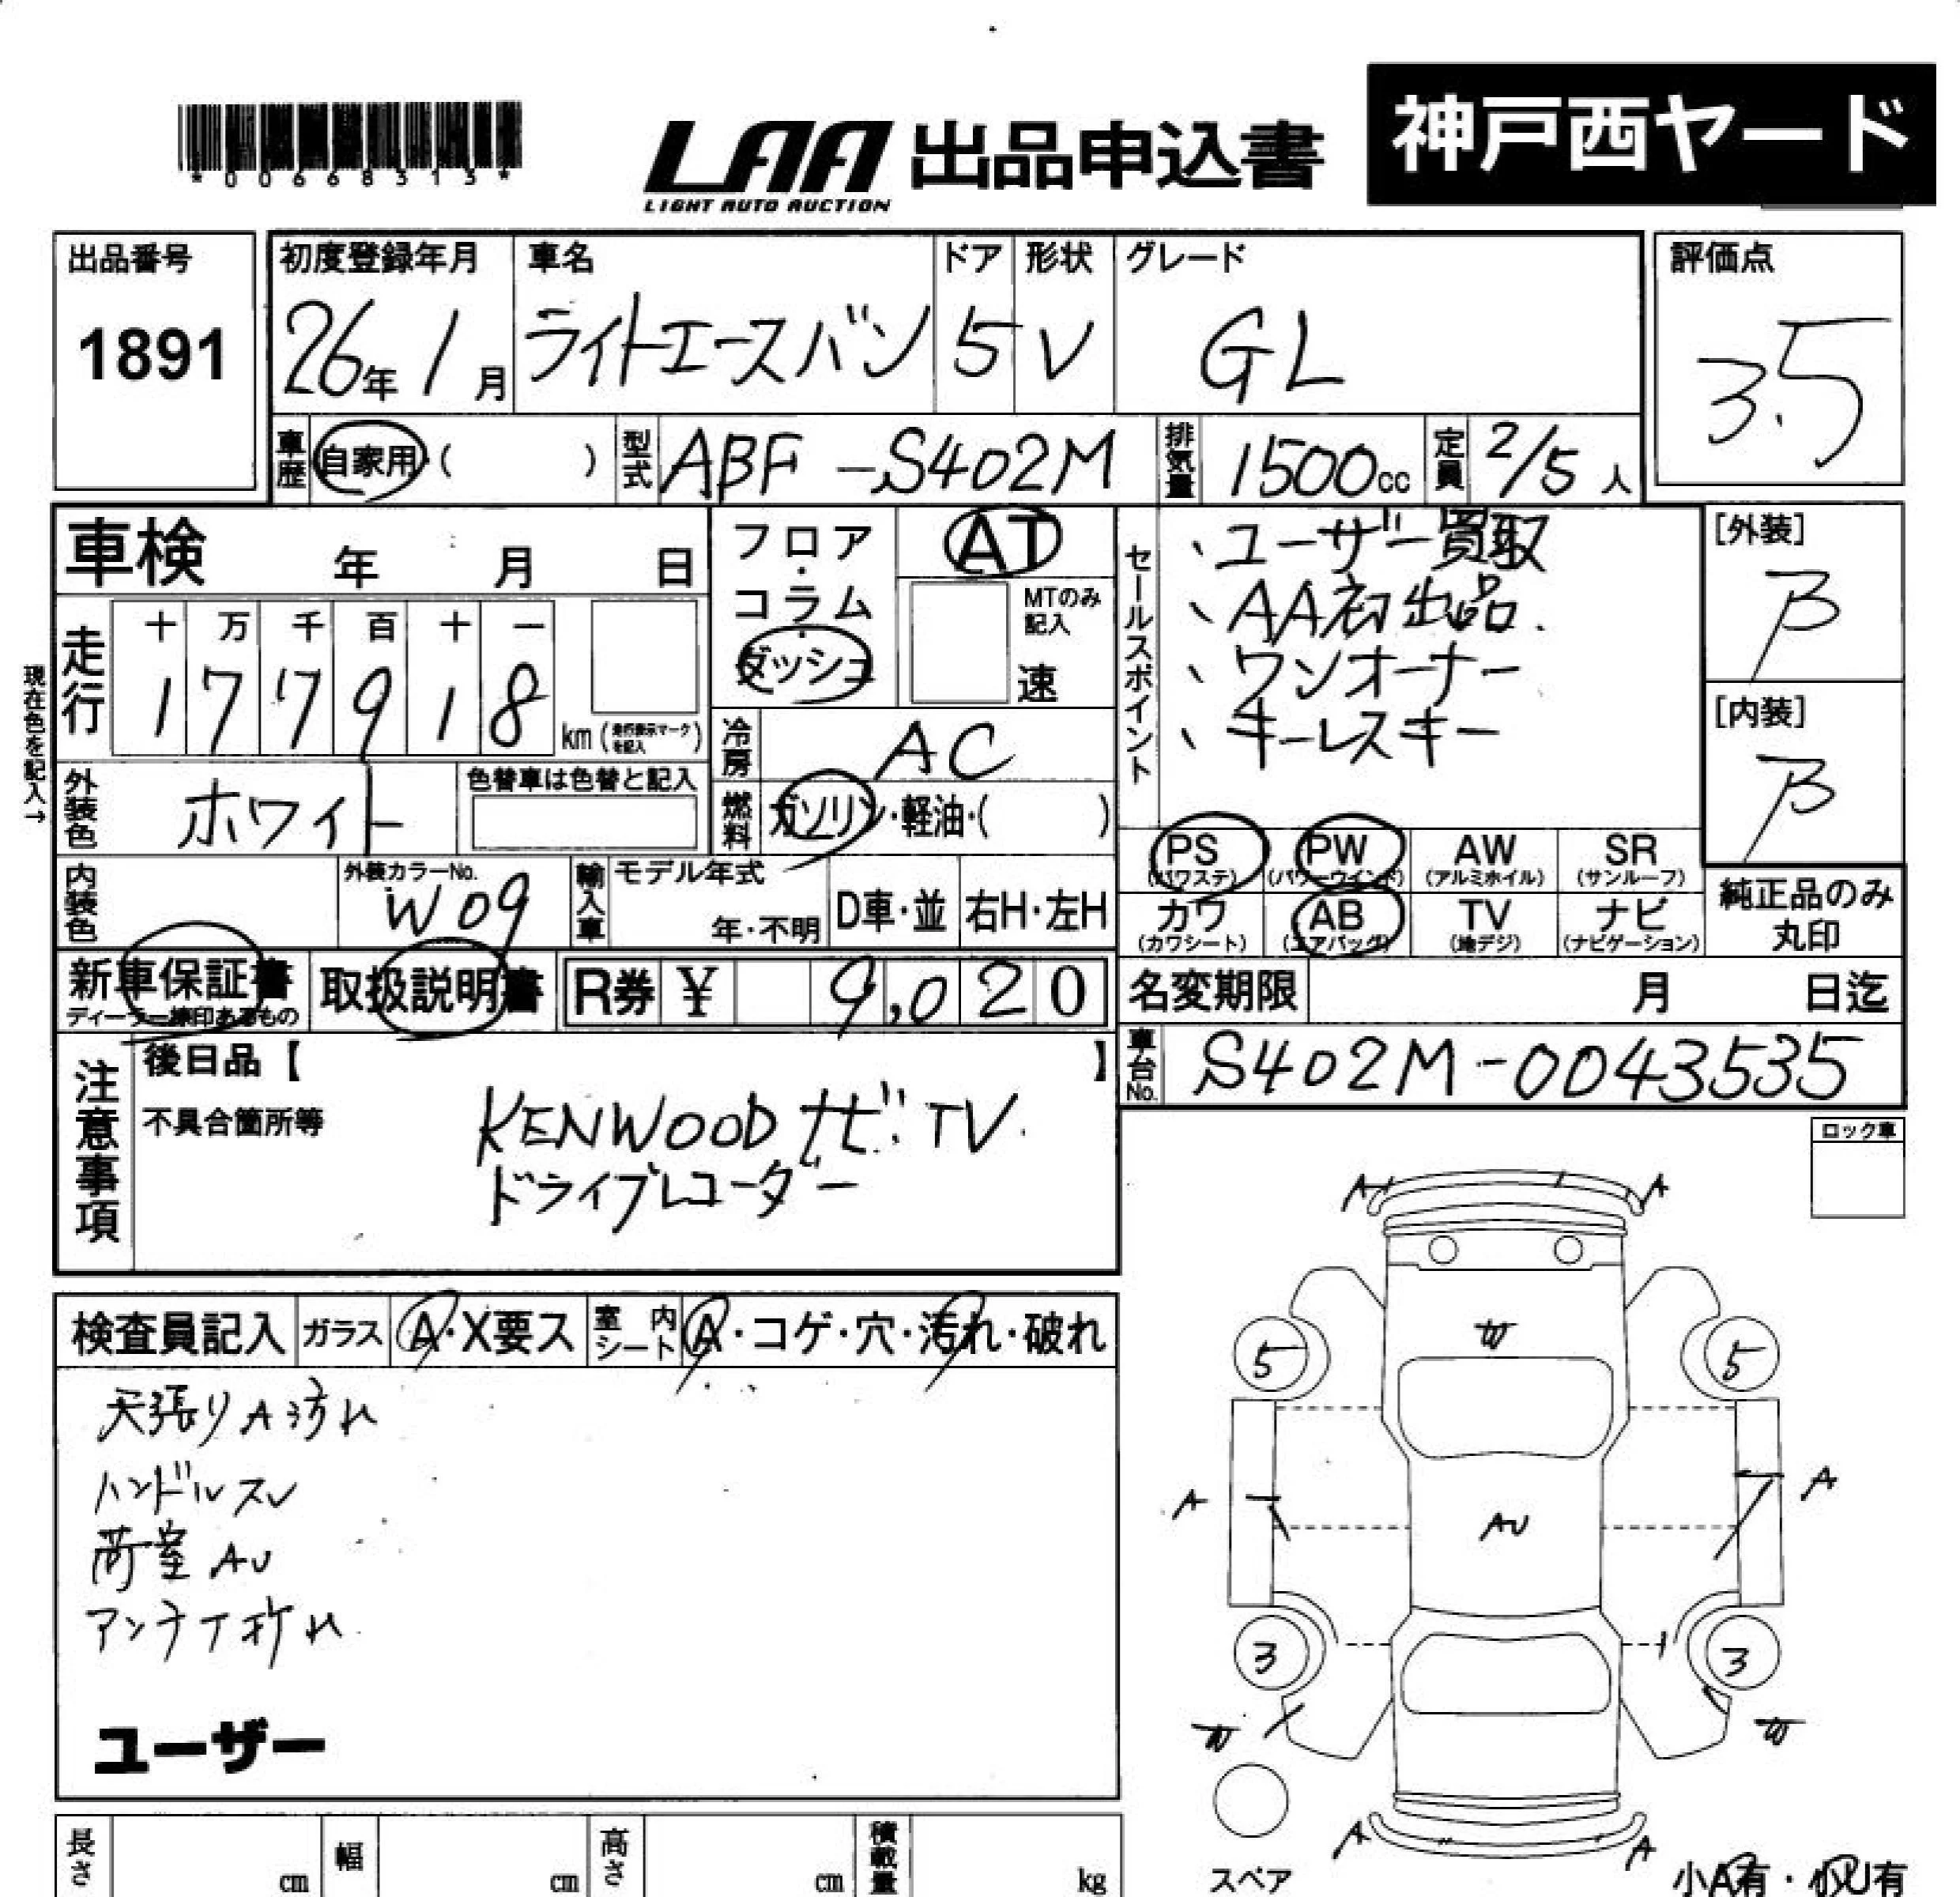 神戸西ヤード
*00668313*
LAA 出品申込書
LIGHT AUTO AUCTION
出品番号 初度登録年月 車名 ドア 形状 グレード 評価点
1891 26年 1月 ライトエースバン 5 V GL 3.5
車歴 自家用・( ) 型式 ABF-S402M 排気量 1500cc 定員 2/5人
車検 年 月 日
フロア・コラム・ダッシュ AT
MTのみ記入 速
現在色を記入→
走行 十 万 千 百 十 一
1 7 7 9 1 8 km (走行表示マークを記入)
セールスポイント
、ユーザー買取
、AA初出品.
、ワンオーナー
、キーレスキー
[外装] B
[内装] B
冷房 AC
外装色 ホワイト 色替車は色替と記入
燃料 ガソリン・軽油・( )
PS (パワステ) PW (パワーウインド) AW (アルミホイル) SR (サンルーフ)
カワ (カワシート) AB (エアバッグ) TV (地デジ) ナビ (ナビゲーション)
純正品のみ
丸印
内装色 外装カラーNo. W09 輸入車 モデル年式 年・不明 D車・並 右H・左H
新車保証書 取扱説明書 R券 ¥ 9,020
ディーラー捺印あるもの
名変期限 月 日迄
車台No. S402M-0043535
注意事項 後日品【 】
不具合箇所等
KENWOODナビ.TV.
ドライブレコーダー
ロック車
検査員記入 ガラス A・X要ス 室内シート A・コゲ・穴・汚れ・破れ
天張りA汚れ
ハンドルスレ
荷室AU
アンテナ折れ
ユーザー
A A
W
5 5
A AU A
3 3
W W
A A
スペア
小A有・小U有
長さ cm 幅 cm 高さ cm 積載量 kg